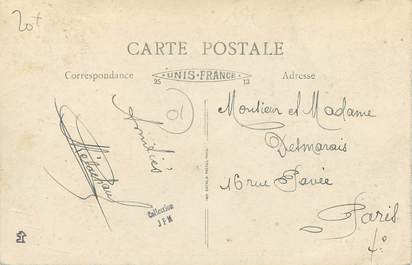 20+
CARTE POSTALE
Correspondance
UNIS-FRANCE
25 13
Adresse
Amitiés
01
Monsieur et Madame
Desmarais
16 rue Pavée
Paris
4e
Collection
J F M